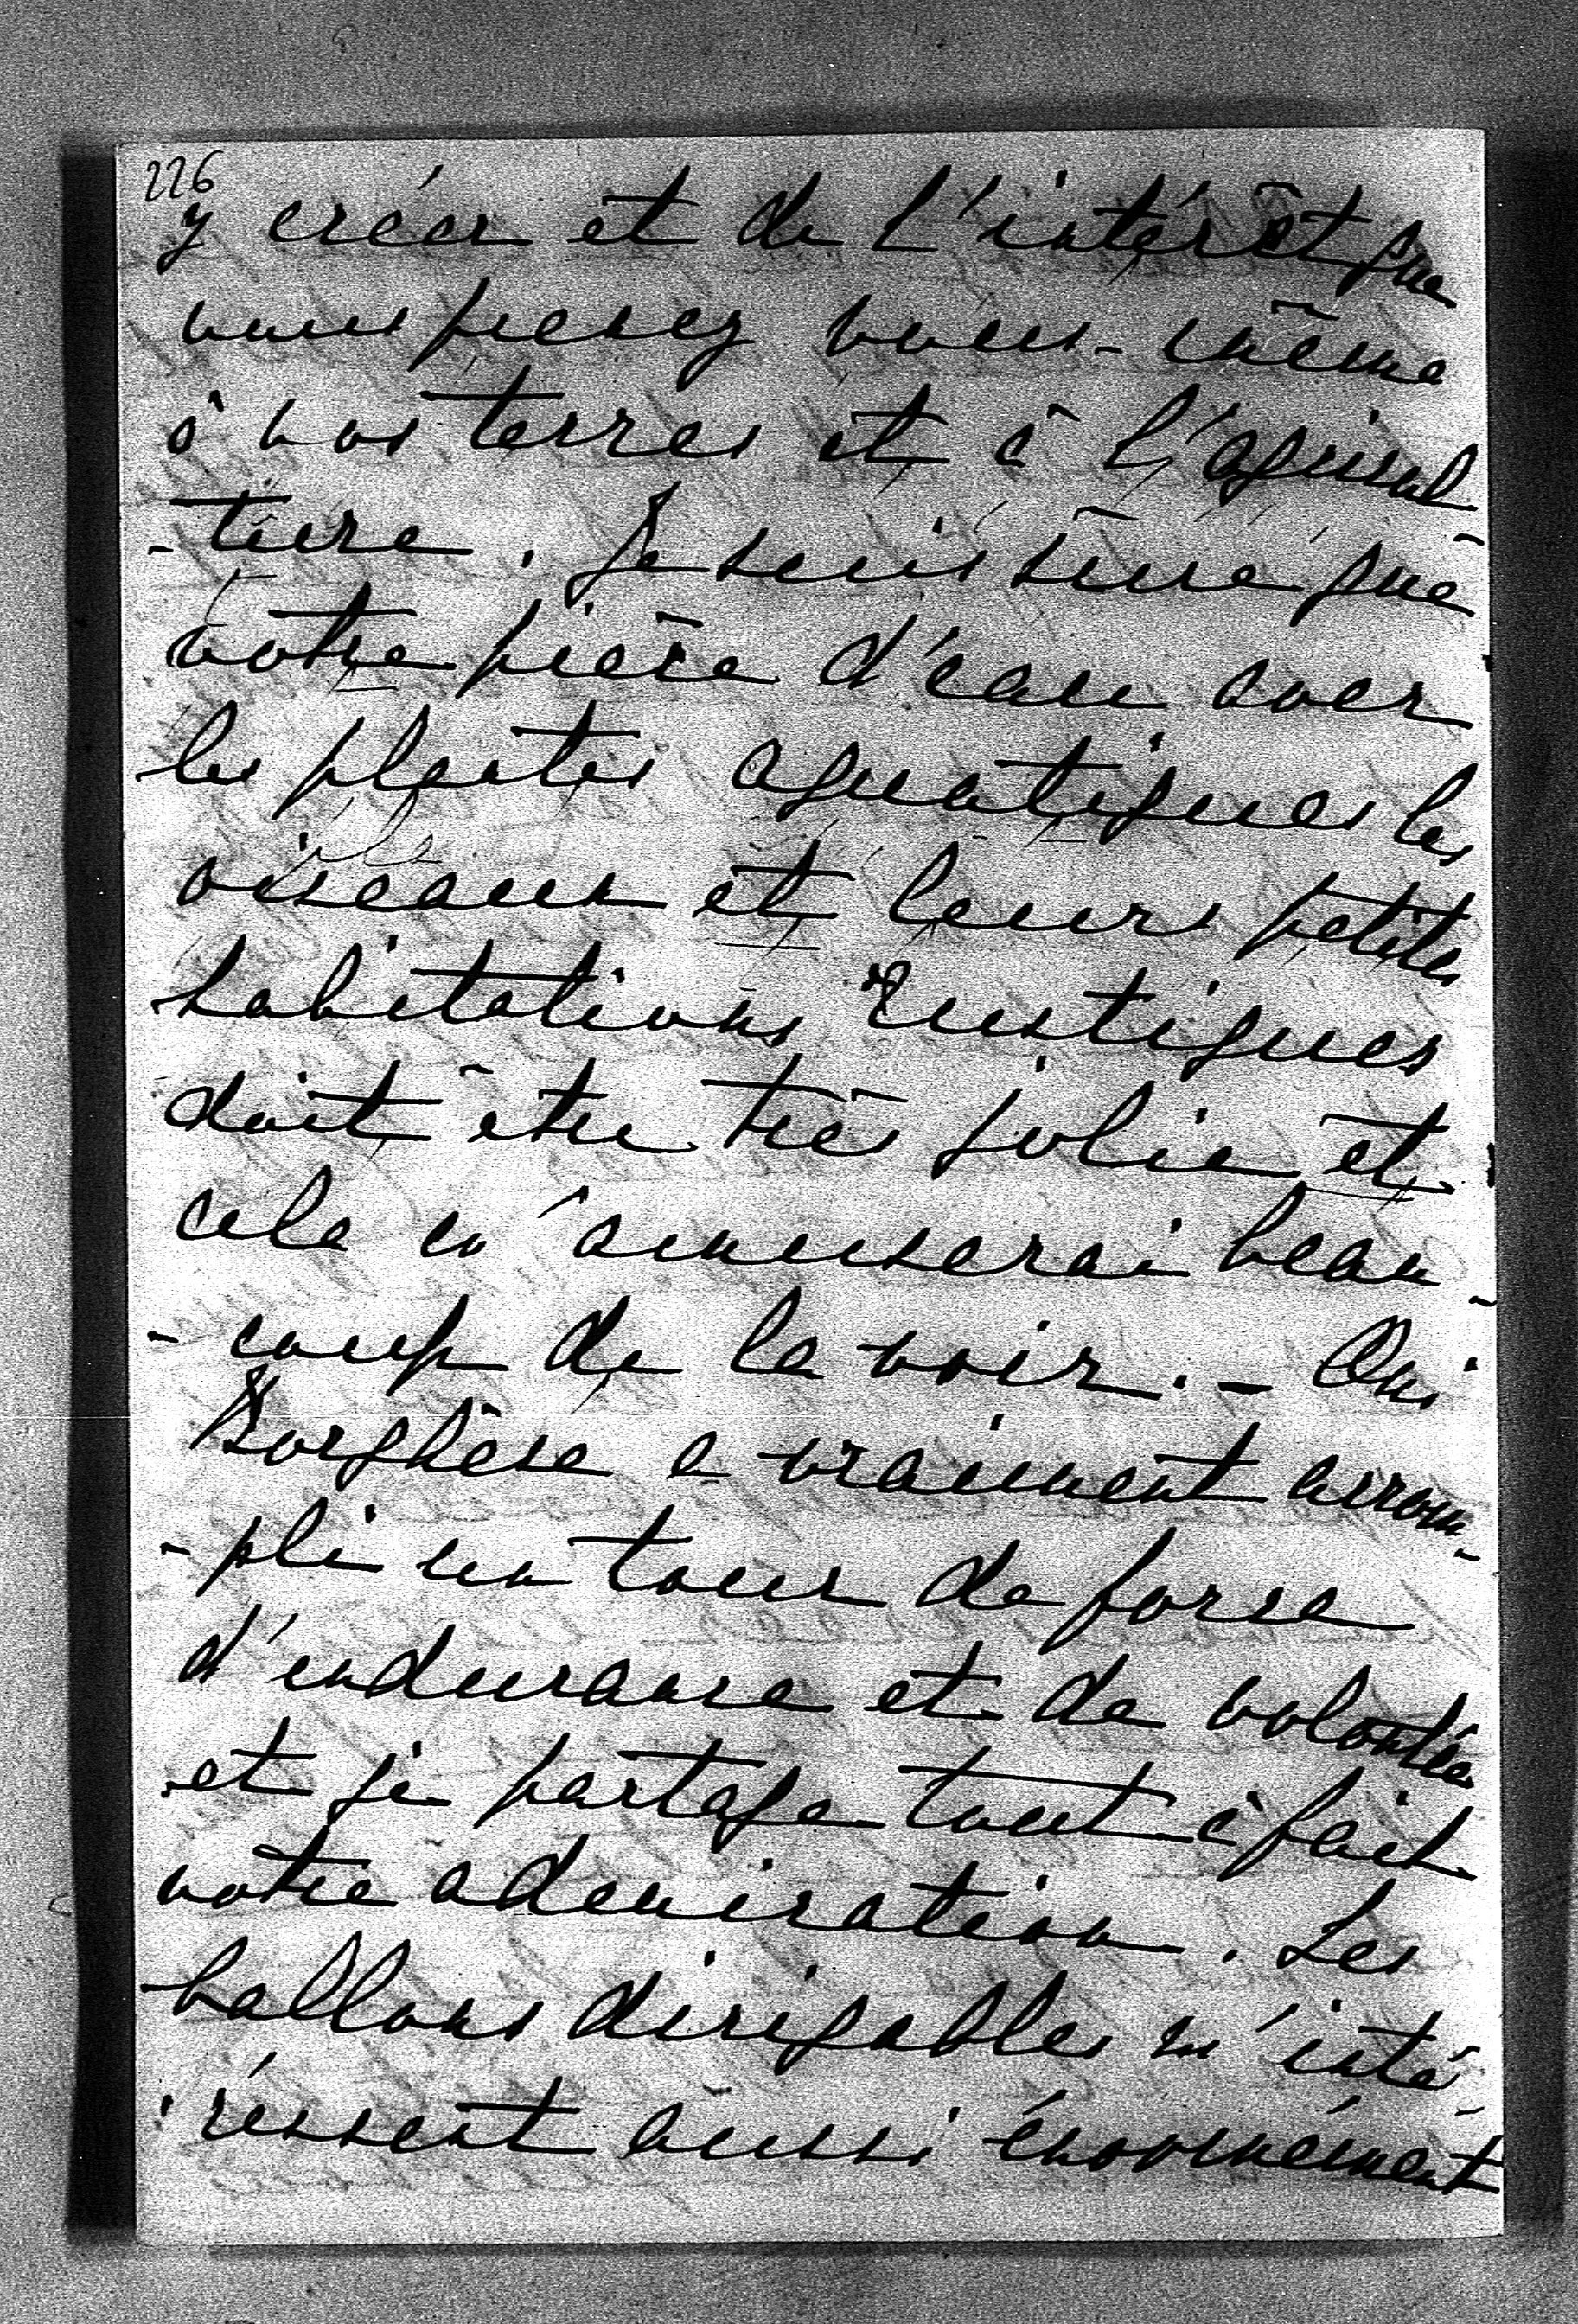 226
y créer et de l'intérêt que
vous prenez vous-même
à vos terres et à l'agricul
-ture. Je suis sûre que
votre pièce d'eau avec
les plantes aquatiques les
oiseaux et leurs petites
habitations rustiques
doit être très jolie et
cela m'amuserai beau-
-coup de la voir. - Oui
Borghèse a vraiment accom-
-pli un tour de force
d'endurance et de volontée
et je partage tout à fait
votre admiration. Les
ballons dirigables m'inté-
-ressent aussi énormément